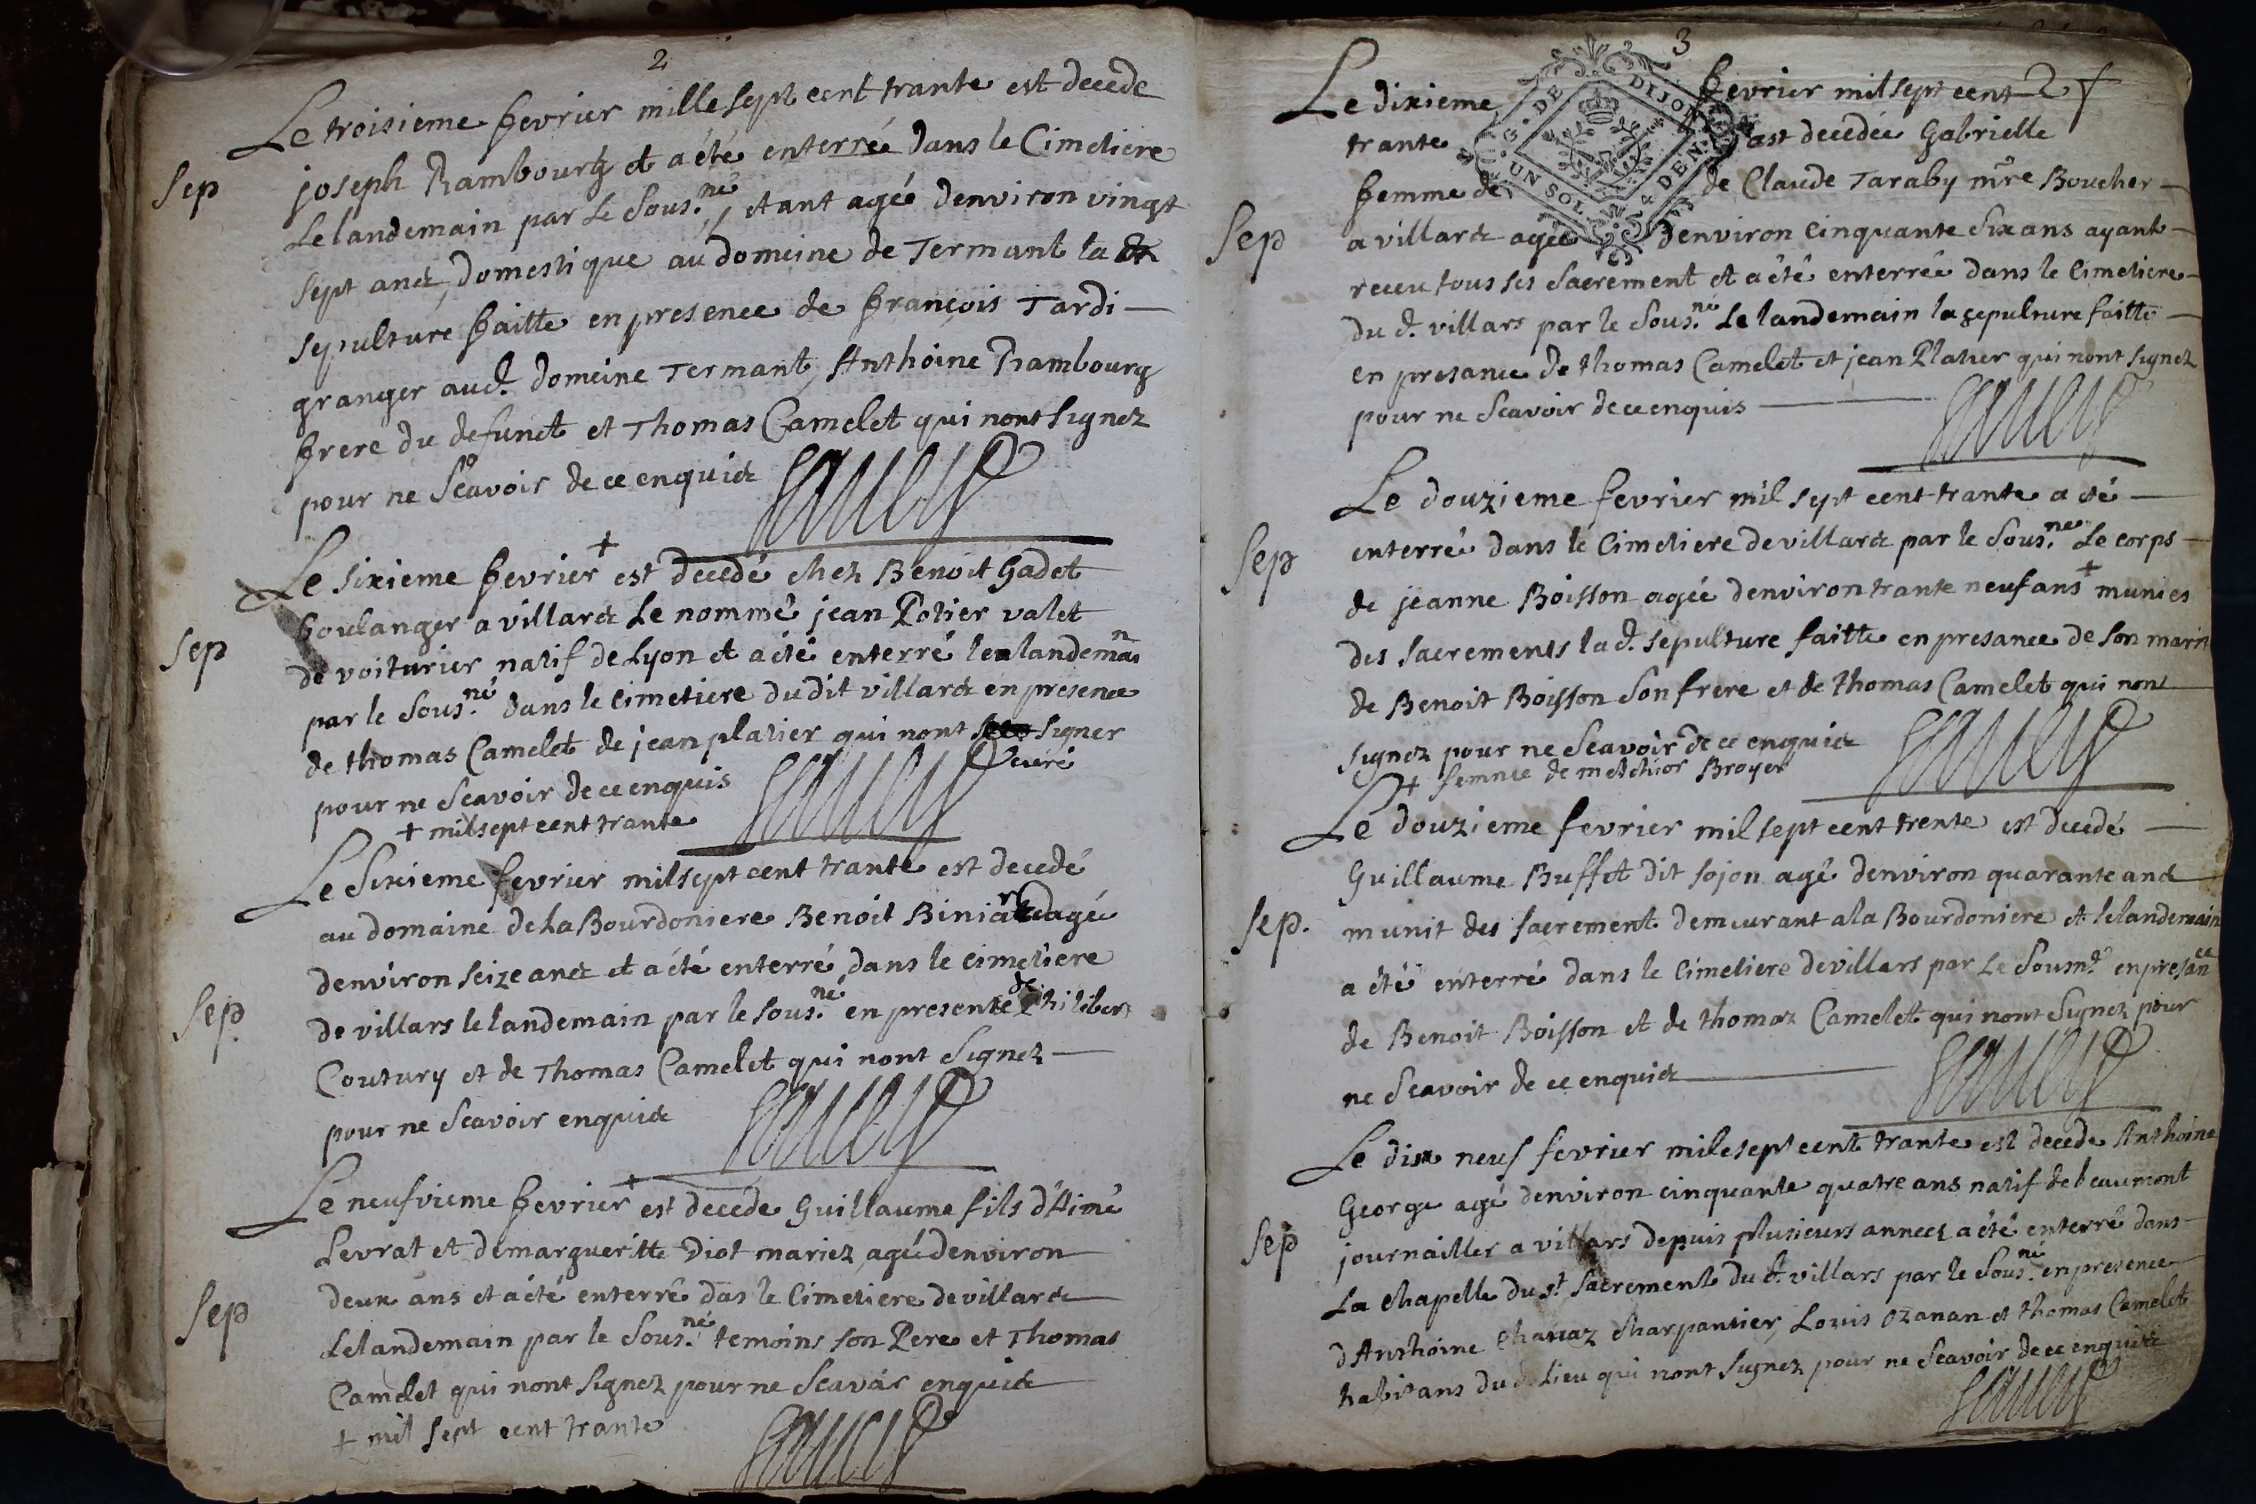 2
Le troisieme fevrier mille sept cent trante est decedé
Sep
joseph Rambourg et a été enterré dans le Cimetiere
Le landemain par Le Sous.né, etant agée denviron vingt
sept ans, domestique au domeine de Termant la
sepulture faitte en presence de françois Tardi
granger aud. domeine Termant, Anthoine Rambourg
frere du defunct et Thomas Camelet qui nont signez
pour ne Scavoir de ce enquis
Le sixieme fevrier + est decedé chez Benoit Gadet
boulanger a villars Le nommé jean Potier valet
Sep
de voiturier natif de Lyon et a été enterré le landeman
par le Sous.né dans le cimetiere dudit villars en presence
de thomas Camelet de jean platier qui nont signer
pour ne Scavoir de ce enquis
curé
+ mil sept cent trante
Le Sixieme fevrier mil sept cent trante est decedé
au domaine de La Bourdoniere Benoit agée
denviron seize ans et a été enterré dans le cimetiere
Sep.
de villars le landemain par le sous.né en presente de philibert
Coutury et de Thomas Camelet qui nont Signez
pour ne Scavoir enquis
Le neufvieme fevrier + est decede Guillaume fils d'Aimé
Levrat et de margueritte Diot mariez, agé denviron
deux ans et a été enterré das le Cimetiere de villars
Sep
Le landemain par le Sous.né temoins son Pere et Thomas
Camelet qui nont signez pour ne Scavoir enquis
+ mil sept cent trante
3
Le dixieme fevrier mil sept cent
G. DE DIJON
UN SOL
DEN.
trante est decedée Gabrielle
femme de de Claude Taraby mre Boucher
Sep
a villars agée denviron Cinquante Six ans ayant
receu tous ses Sacrement et a été enterrée dans le Cimetiere
du d. villars par le Sous.né Le landemain la sepulture faitte
en presance de thomas Camelet et jean Platier qui nont signez
pour ne Scavoir de ce enquis
Le douzieme fevrier mil sept cent trante a été
Sep
enterré dans le Cimetiere de villars par le Sous.né Le corps
de jeanne Boisson agée denviron trante neuf ans + munies
des sacrements la d. sepulture faitte en presance de son marin
de Benoit Boisson Son frere et de thomas Camelet qui non
signez pour ne Scavoir de ce enquis
+ femme de melchior Broyer
Le douzieme fevrier mil sept cent trente est decedé
Guillaume Buffet dit sojon agé denviron quarante ans
Sep.
munit des sacrement demeurant a la Bourdoniere et le landemain
a été enterré dans le Cimetiere de villars par Le Sousné en presance
de Benoit Boisson et de thomas Camelet qui nont Signez pour
ne Scavoir de ce enquis
Le dix neuf fevrier mile sept cent trante est decede Anthoine
George agé denviron cinquante quatre ans natif de beaumont
Sep
journailler a villars depuis plusieurs annees a été enterré dans
La chapelle du st Sacrement du d. villars par le Sous.né en presence
d Anthoine Chavaz charpantier, Louis Ozanan et thomas Camelet
habitans du d. Lieu qui nont signez pour ne Scavoir de ce enquis